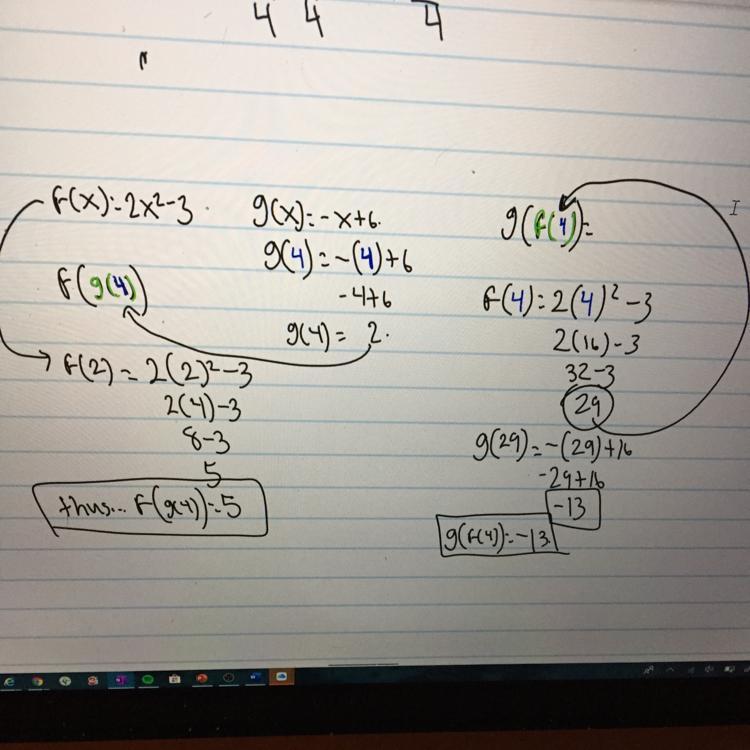 4 4 4
f(x)=2x²-3
f(g(4))
f(2) = 2(2)²-3
2(4)-3
8-3
5
thus... f(g(4))=5
g(x)=-x+6.
g(4)=-(4)+6
-4+6
g(4) = 2.
g(f(4))=
f(4)=2(4)²-3
2(16)-3
32-3
29
g(29)=-(29)+16
-29+16
-13
g(f(4))=-13.